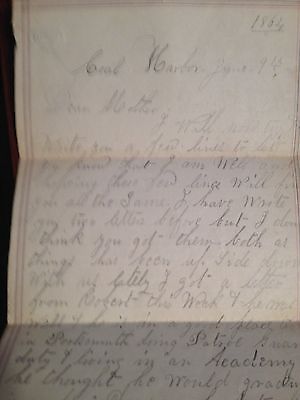 1864
Coal Harbor June 9th
Dear Mother
I Will now try
Write you a few lines to let
you know that I am Well and
hoping these few lines Will find
you all the Same I have Write
you two letter before but I dont
think you got them both as
things has been up Side down
With us lately I got a letter
from Robert this Week
he is in a good place
in Portsmouth doing Patrol Guard
duty & living in an Academy
he thought he Would